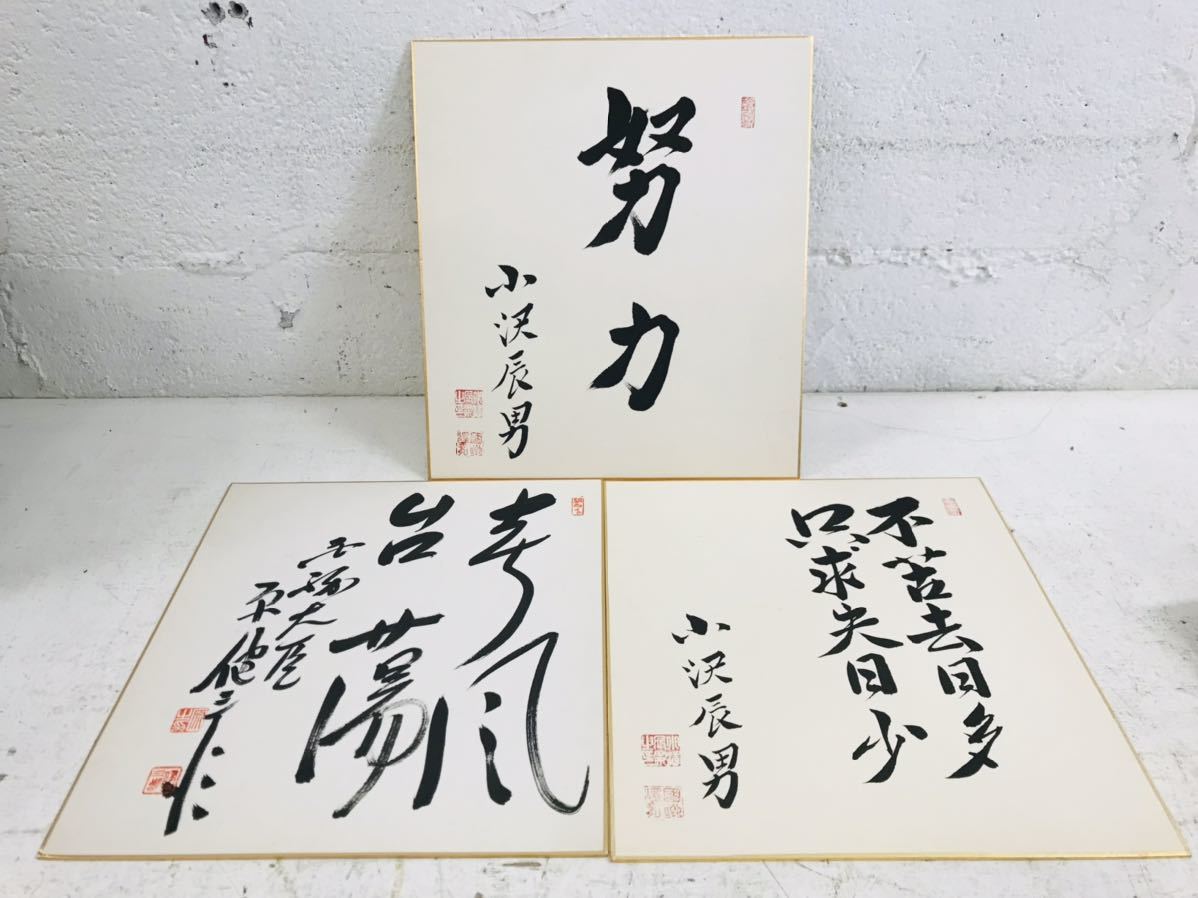 努力
小沢辰男
春風
台蕩
大臣
不苦去日多
只求失日少
小沢辰男